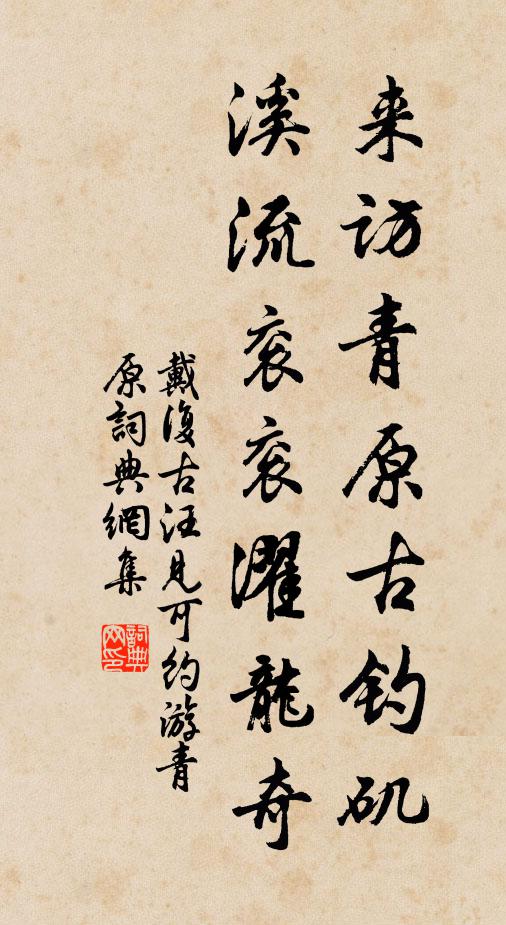 来访青原古钓矶
溪流衮衮濯龍奇
戴復古汪見可約游青
原詞典網集
詞典
网印